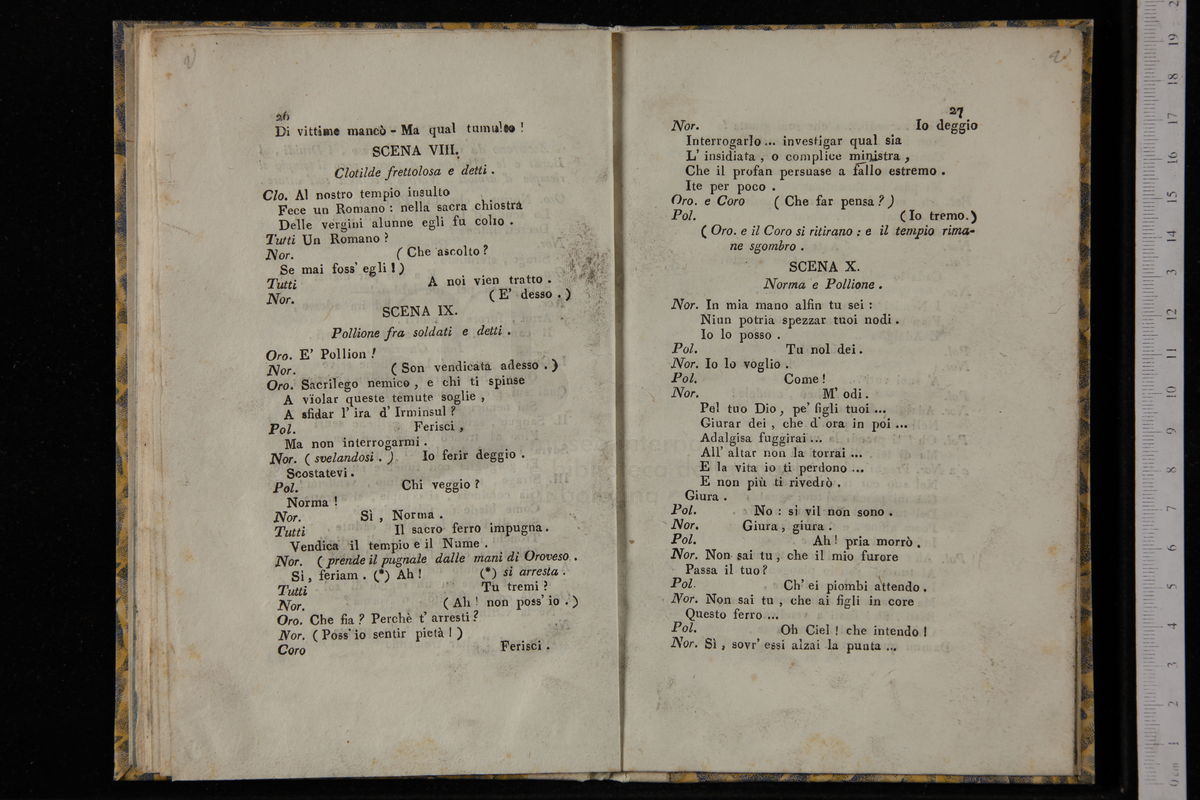 26
Di vittime mancò - Ma qual tumulto !
SCENA VIII.
Clotilde frettolosa e detti .
Clo. Al nostro tempio insulto
Fece un Romano : nella sacra chiostra
Delle vergini alunne egli fu colto .
Tutti Un Romano ?
Nor. ( Che ascolto ?
Se mai foss' egli ! )
Tutti A noi vien tratto .
Nor. ( E' desso . )
SCENA IX.
Pollione fra soldati e detti .
Oro. E' Pollion !
Nor. ( Son vendicata adesso . )
Oro. Sacrilego nemico , e chi ti spinse
A violar queste temute soglie ,
A sfidar l' ira d' Irminsul ?
Pol. Ferisci ,
Ma non interrogarmi .
Nor. ( svelandosi . ) Io ferir deggio .
Scostatevi .
Pol. Chi veggio ?
Norma !
Nor. Sì , Norma .
Tutti Il sacro ferro impugna .
Vendica il tempio e il Nume .
Nor. ( prende il pugnale dalle mani di Oroveso .
Si , feriam . (*) Ah ! (*) si arresta .
Tutti Tu tremi ?
Nor. ( Ah ! non poss' io . )
Oro. Che fia ? Perchè t' arresti ?
Nor. ( Poss' io sentir pietà ! )
Coro Ferisci .
27
Nor. Io deggio
Interrogarlo ... investigar qual sia
L' insidiata , o complice ministra ,
Che il profan persuase a fallo estremo .
Ite per poco .
Oro. e Coro ( Che far pensa ? )
Pol. ( Io tremo. )
( Oro. e il Coro si ritirano : e il tempio rima-
ne sgombro .
SCENA X.
Norma e Pollione .
Nor. In mia mano alfin tu sei :
Niun potria spezzar tuoi nodi .
Io lo posso .
Pol. Tu nol dei .
Nor. Io lo voglio .
Pol. Come !
Nor. M' odi .
Pel tuo Dio , pe' figli tuoi ...
Giurar dei , che d' ora in poi ...
Adalgisa fuggirai ...
All' altar non la torrai ...
E la vita io ti perdono ...
E non più ti rivedrò .
Giura .
Pol. No : si vil non sono .
Nor. Giura , giura .
Pol. Ah ! pria morrò .
Nor. Non sai tu , che il mio furore
Passa il tuo ?
Pol. Ch' ei piombi attendo .
Nor. Non sai tu , che ai figli in core
Questo ferro ...
Pol. Oh Ciel ! che intendo !
Nor. Sì , sovr' essi alzai la punta ...